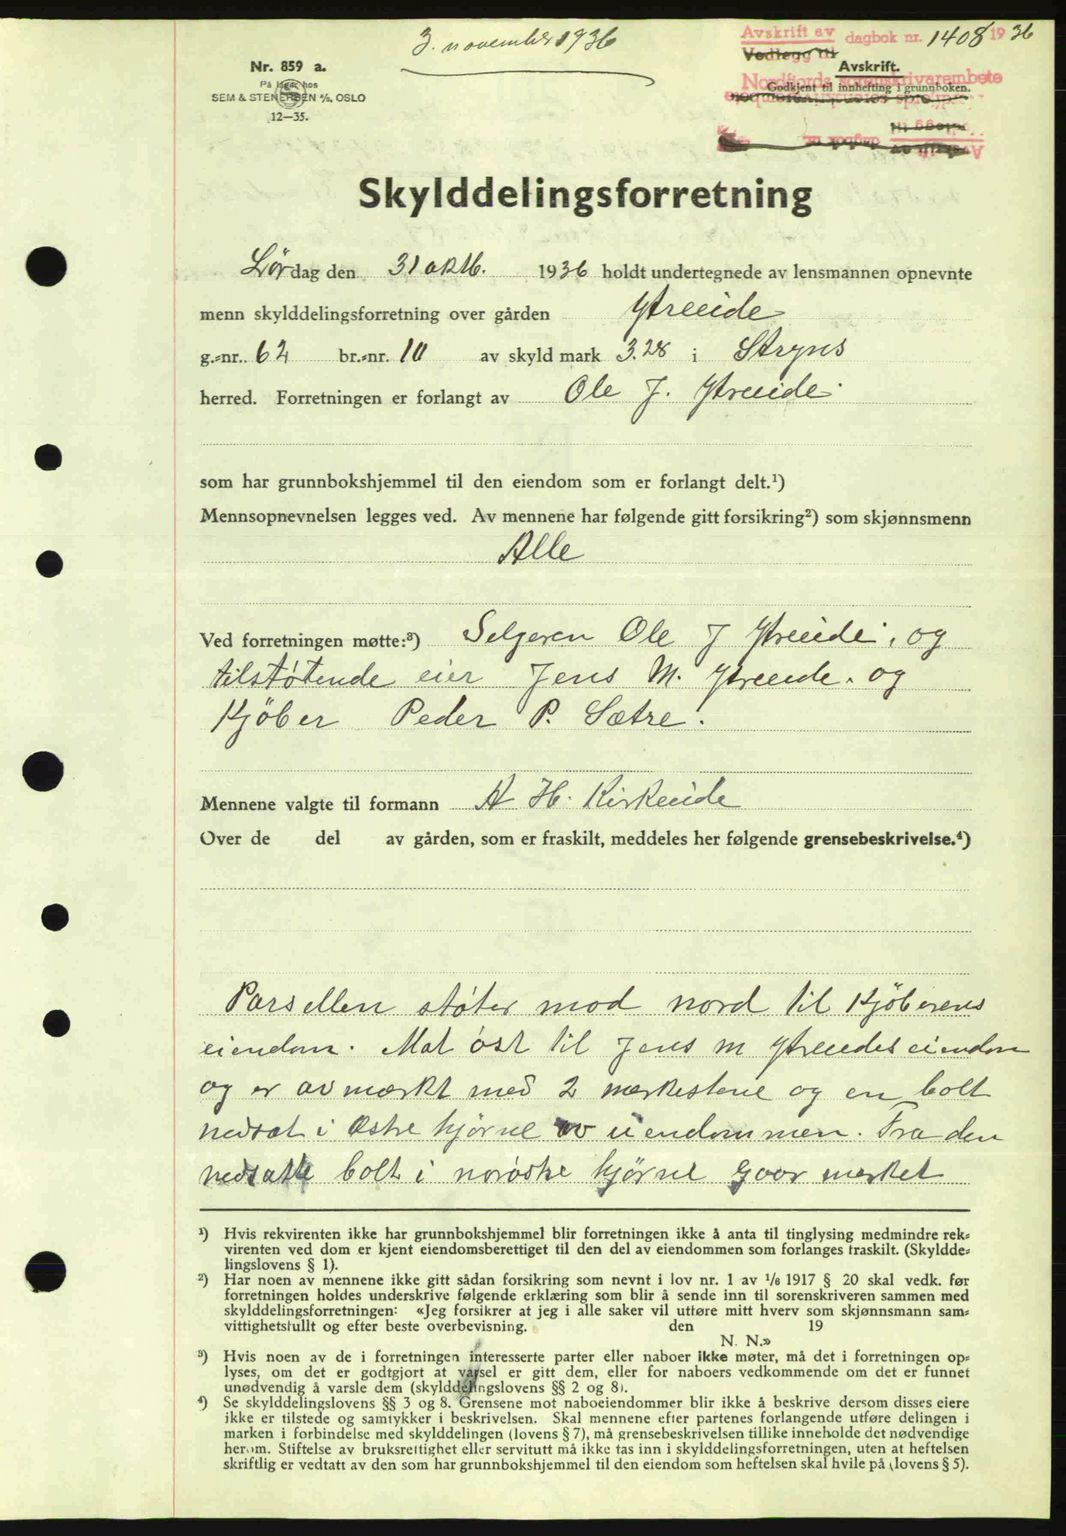 3. november 1936
Avskrift av dagbok nr. 1408 1936
Vedlegg til
Nordfjords sorenskriverembete
Nr. 859 a.
På lager hos
SEM & STENERSEN A/S, OSLO
12—35.
Avskrift.
Godkjent til innhefting i grunnboken.
Skylddelingsforretning
Lørdag den 31 oktb. 1936 holdt undertegnede av lensmannen opnevnte
menn skylddelingsforretning over gården Ytreeide
g.-nr. 62 br.-nr. 10 av skyld mark 3.28 i Stryns
herred. Forretningen er forlangt av Ole J. Ytreeide.
som har grunnbokshjemmel til den eiendom som er forlangt delt.¹)
Mennsopnevnelsen legges ved. Av mennene har følgende gitt forsikring²) som skjønnsmenn
Alle
Ved forretningen møtte:³) Selgeren Ole J Ytreeide, og
tilstøtende eier Jens M. Ytreeide. og
Kjöber Peder P. Sætre.
Mennene valgte til formann A H. Kirkeeide
Over de del av gården, som er fraskilt, meddeles her følgende grensebeskrivelse.⁴)
Parsellen støter mod nord til Kjöberens
eiendom. Mot öst til Jens M Ytreeides eiendom
og er avmærkt med 2 merkestene og en bolt
nedsat i Østre hjörne av eiendommen. Fra den
nedsatte bolt i norøstre hjörne gaar merket
¹) Hvis rekvirenten ikke har grunnbokshjemmel blir forretningen ikke å anta til tinglysing medmindre rek-
virenten ved dom er kjent eiendomsberettiget til den del av eiendommen som forlanges fraskilt. (Skyldde-
lingslovens § 1).
²) Har noen av mennene ikke gitt sådan forsikring som nevnt i lov nr. 1 av ¹/₆ 1917 § 20 skal vedk. før
forretningen holdes underskrive følgende erklæring som blir å sende inn til sorenskriveren sammen med
skylddelingsforretningen: «Jeg forsikrer at jeg i alle saker vil utføre mitt hverv som skjønnsmann sam-
vittighetsfullt og efter beste overbevisning. den 19
N. N.»
³) Hvis noen av de i forretningen interesserte parter eller naboer ikke møter, må det i forretningen op-
lyses, om det er godtgjort at varsel er gitt dem, eller for naboers vedkommende om det er funnet
unødvendig å varsle dem (skylddelingslovens §§ 2 og 8).
⁴) Se skylddelingslovens §§ 3 og 8. Grensene mot naboeiendommer blir ikke å beskrive dersom disses eiere
ikke er tilstede og samtykker i beskrivelsen. Skal mennene efter partenes forlangende utføre delingen i
marken i forbindelse med skylddelingen (lovens § 7), må grensebeskrivelsen tillike inneholde det nødvendige
herom. Stiftelse av bruksrettighet eller servitutt må ikke tas inn i skylddelingsforretningen, uten at heftelsen
skriftlig er vedtatt av den som har grunnbokshjemmel til den eiendom som heftelsen skal hvile på (lovens § 5).